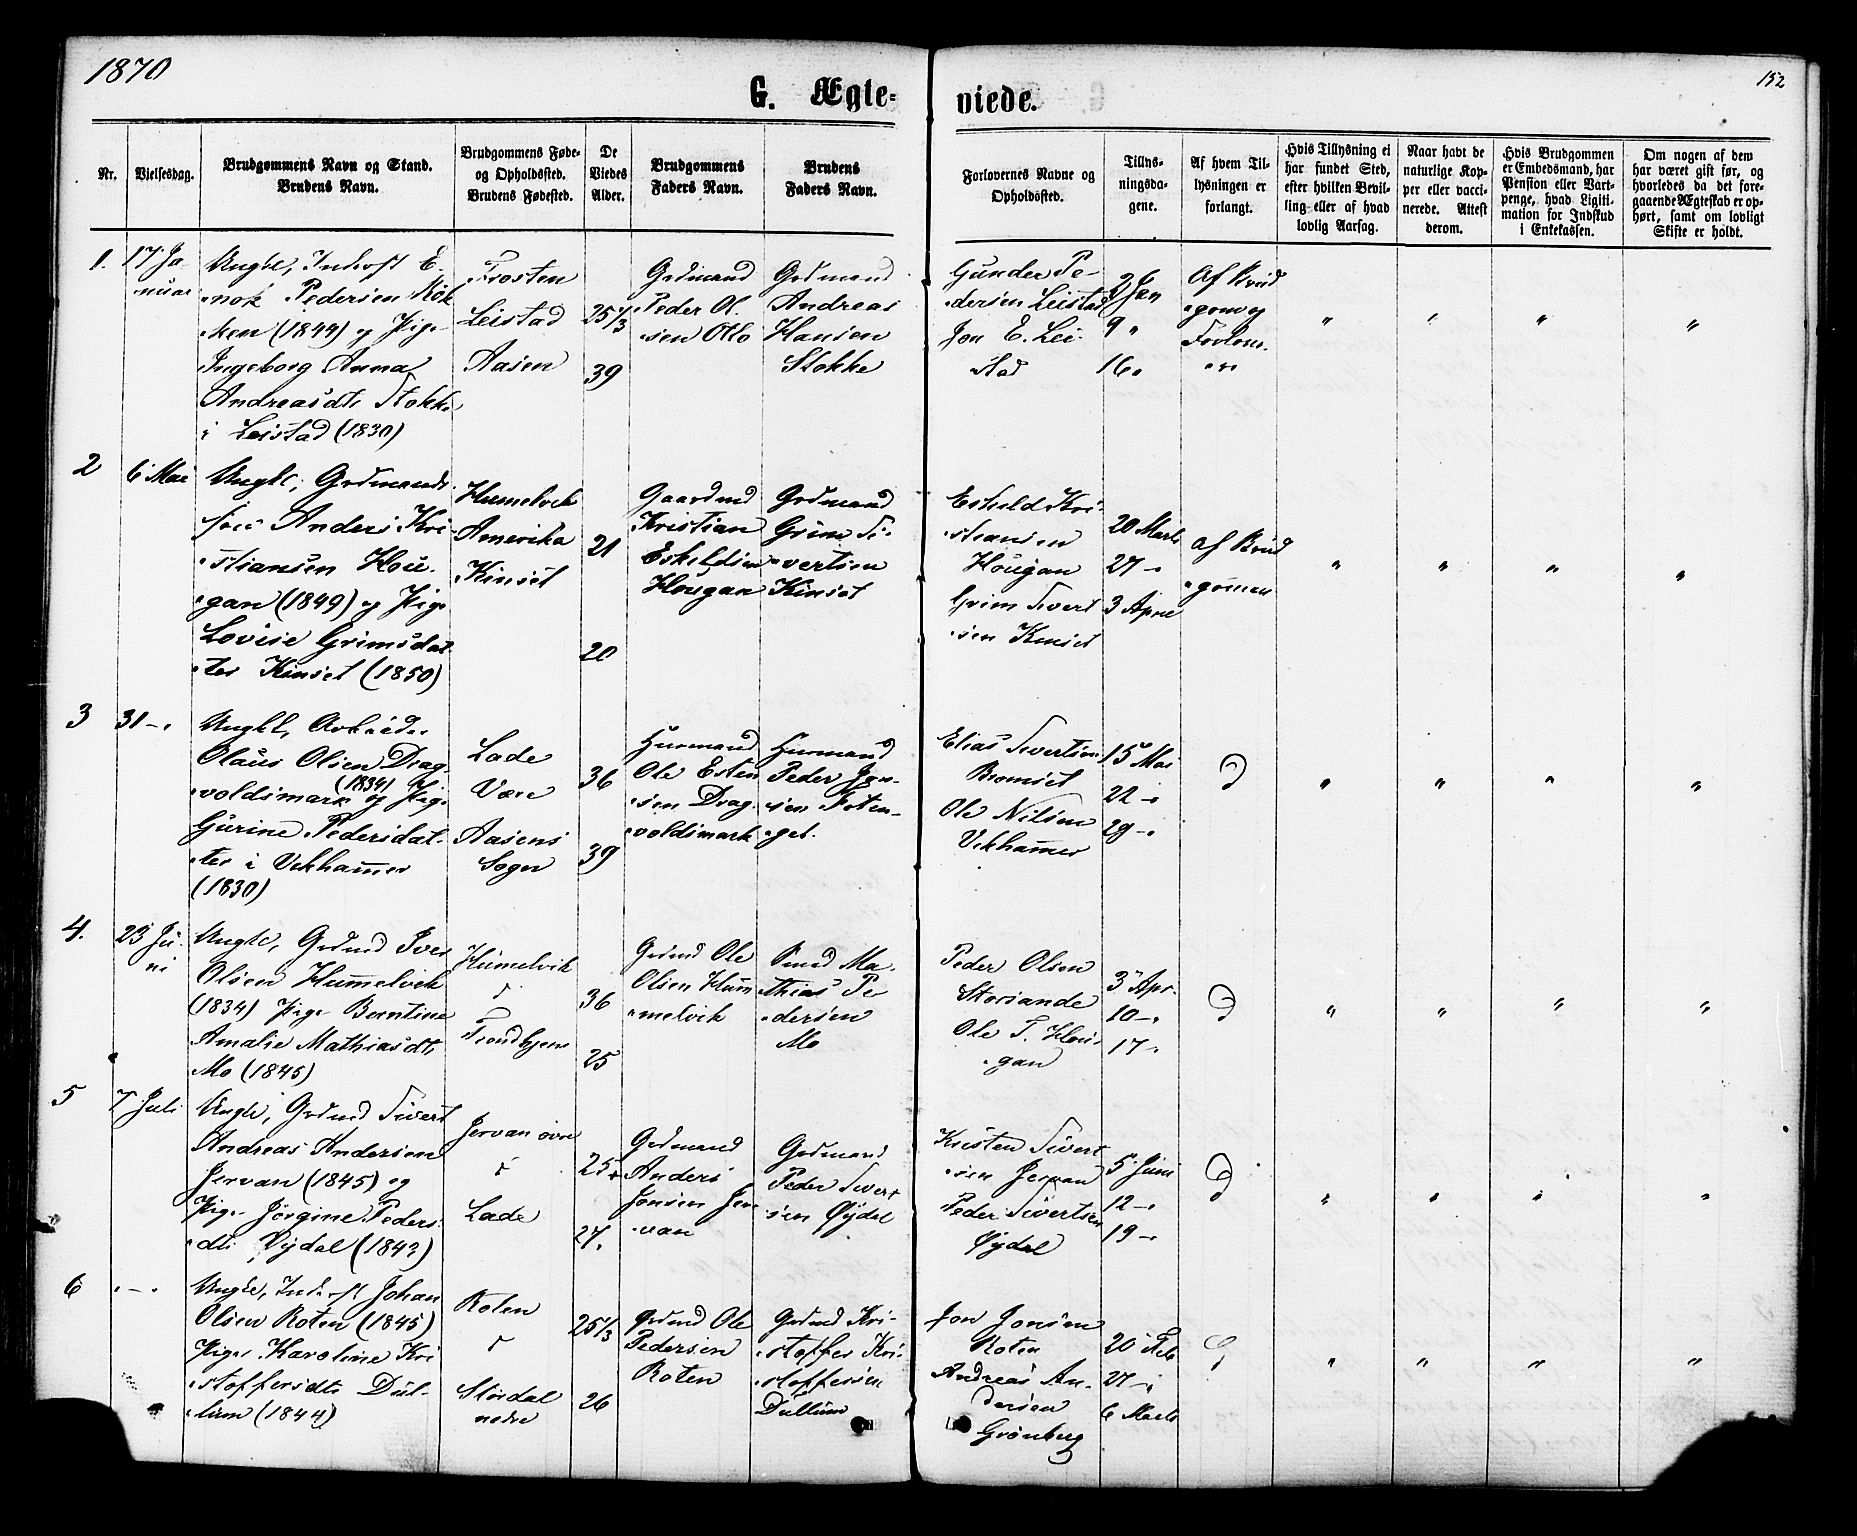 1870
152
G. Ægte-
viede.
Nr.
Vielsesdag.
Brudgommens Navn og Stand.
Brudens Navn.
Brudgommens Føde-
og Opholdssted.
Brudens Fødested.
De
Viedes
Alder.
Brudgommens
Faders Navn.
Brudens
Faders Navn.
Forlovernes Navne og
Opholdssted.
Tillys-
ningsda-
gene.
Af hvem Til-
lysningen er
forlangt.
Hvis Tillysning ei
har fundet Sted,
efter hvilken Bevil-
ling eller af hvad
lovlig Aarsag.
Naar havt de
naturlige Kop-
per eller vacci-
nerede. Attest
derom.
Hvis Brudgommen
er Embedsmand, har
Pension eller Vart-
penge, hvad Ligiti-
mation for Indskud
i Enkekassen.
Om nogen af dem
har været gift før, og
hvorledes da det fore-
gaaende Ægteskab er op-
hørt, samt om lovligt
Skifte er holdt.
1.
17 Ja-
nuar
Ungkl, Inderst E-
nok Pedersen
(1849) og Pige
Ingeborg Anna
Andreasdt. Stokke
i Leistad (1830)
Frosten
Leistad
Aasen
25 1/3
39
Grdmand
Peder Ol-
sen Otlo
Grdmand
Andreas
Hansen
Stokke
Gunder Pe-
dersen Leistad
Jon E. Lei-
stad
2 Jan
9 "
16.
Af Brud
gom og
Forlov.
" " " "
2
6 Mai
Ungkl, Grdmands
søn Anders Kri-
stiansen Hou-
gan (1849) og Pige
Lovise Grimsdat
ter Kinset (1850)
Humelvik
Amerika
Kinset
21
20
Gaardmd
Kristian
Eskeldsen
Hougan
Grdmand
Grim Si-
vertsen
Kinset
Eskeld Kri-
stiansen
Hougan
Grim Sivert
sen Kinset
20 Marts
27 -
3 April
af Brud
gomen
" " " "
3
31 -.
Ungkl, Arbeider
Olaus Olsen Drag
voldsmark (1834) og Pige
Gurine Pedersdat-
ter i Vikhamer
(1830)
Lade
Være
Aasens
Sogn
36
39
Husmand
Ole Esten
sen Drag-
voldsmark
Husmand
Peder Jon-
sen Foten-
get.
Elias Sivertsen
Bromset
Ole Nilsen
Vikhamer
15 Mai
22 -.
29 -.
D
" " " "
4.
23 Ju-
ni
Ungkl, Grdmd Iver
Olsen Humelvik
(1834) Pige Berntine
Amalie Mathiasdt.
Mo (1845)
Humelvik
Trondhjem
36
25
Grdmd Ole
Olsen Hum
melvik
Smed Ma-
thias Pe
dersen
Mo
Peder Olsen
Storsande
Ole T. Hou-
gan
3 Apr.
10 -.
17 -.
D
" " " "
5
7 Juli
Ungkl, Grdmd Sivert
Andreas Andersen
Jervan (1845) og
Pige Jørgine Peders
dt. Øydal (1843)
Jervan øvre
Lade
25
27.
Grdmand
Anders
Jonsen Jer
van
Grdmand
Peder Sivert
sen Øydal
Kristen Sivert
sen Jervan
Peder Sivertsen
Øydal
5 Juni
12 -.
19 -.
D
" " " "
6
. - .
Ungkl, Inderst Johan
Olsen Roten (1845)
Pige Karoline Kri
stoffersdt. Dul-
lum (1844)
Roten
Størdal
nedre
25 1/3
26
Grdmd Ole
Pedersen
Roten
Grdmd Kri-
stoffer Kri-
stoffersen
Dullum
Jon Jonsen
Roten
Andreas An-
dersen
Grønberg
20 Feb
27 -.
6 Marts
D
" " " "